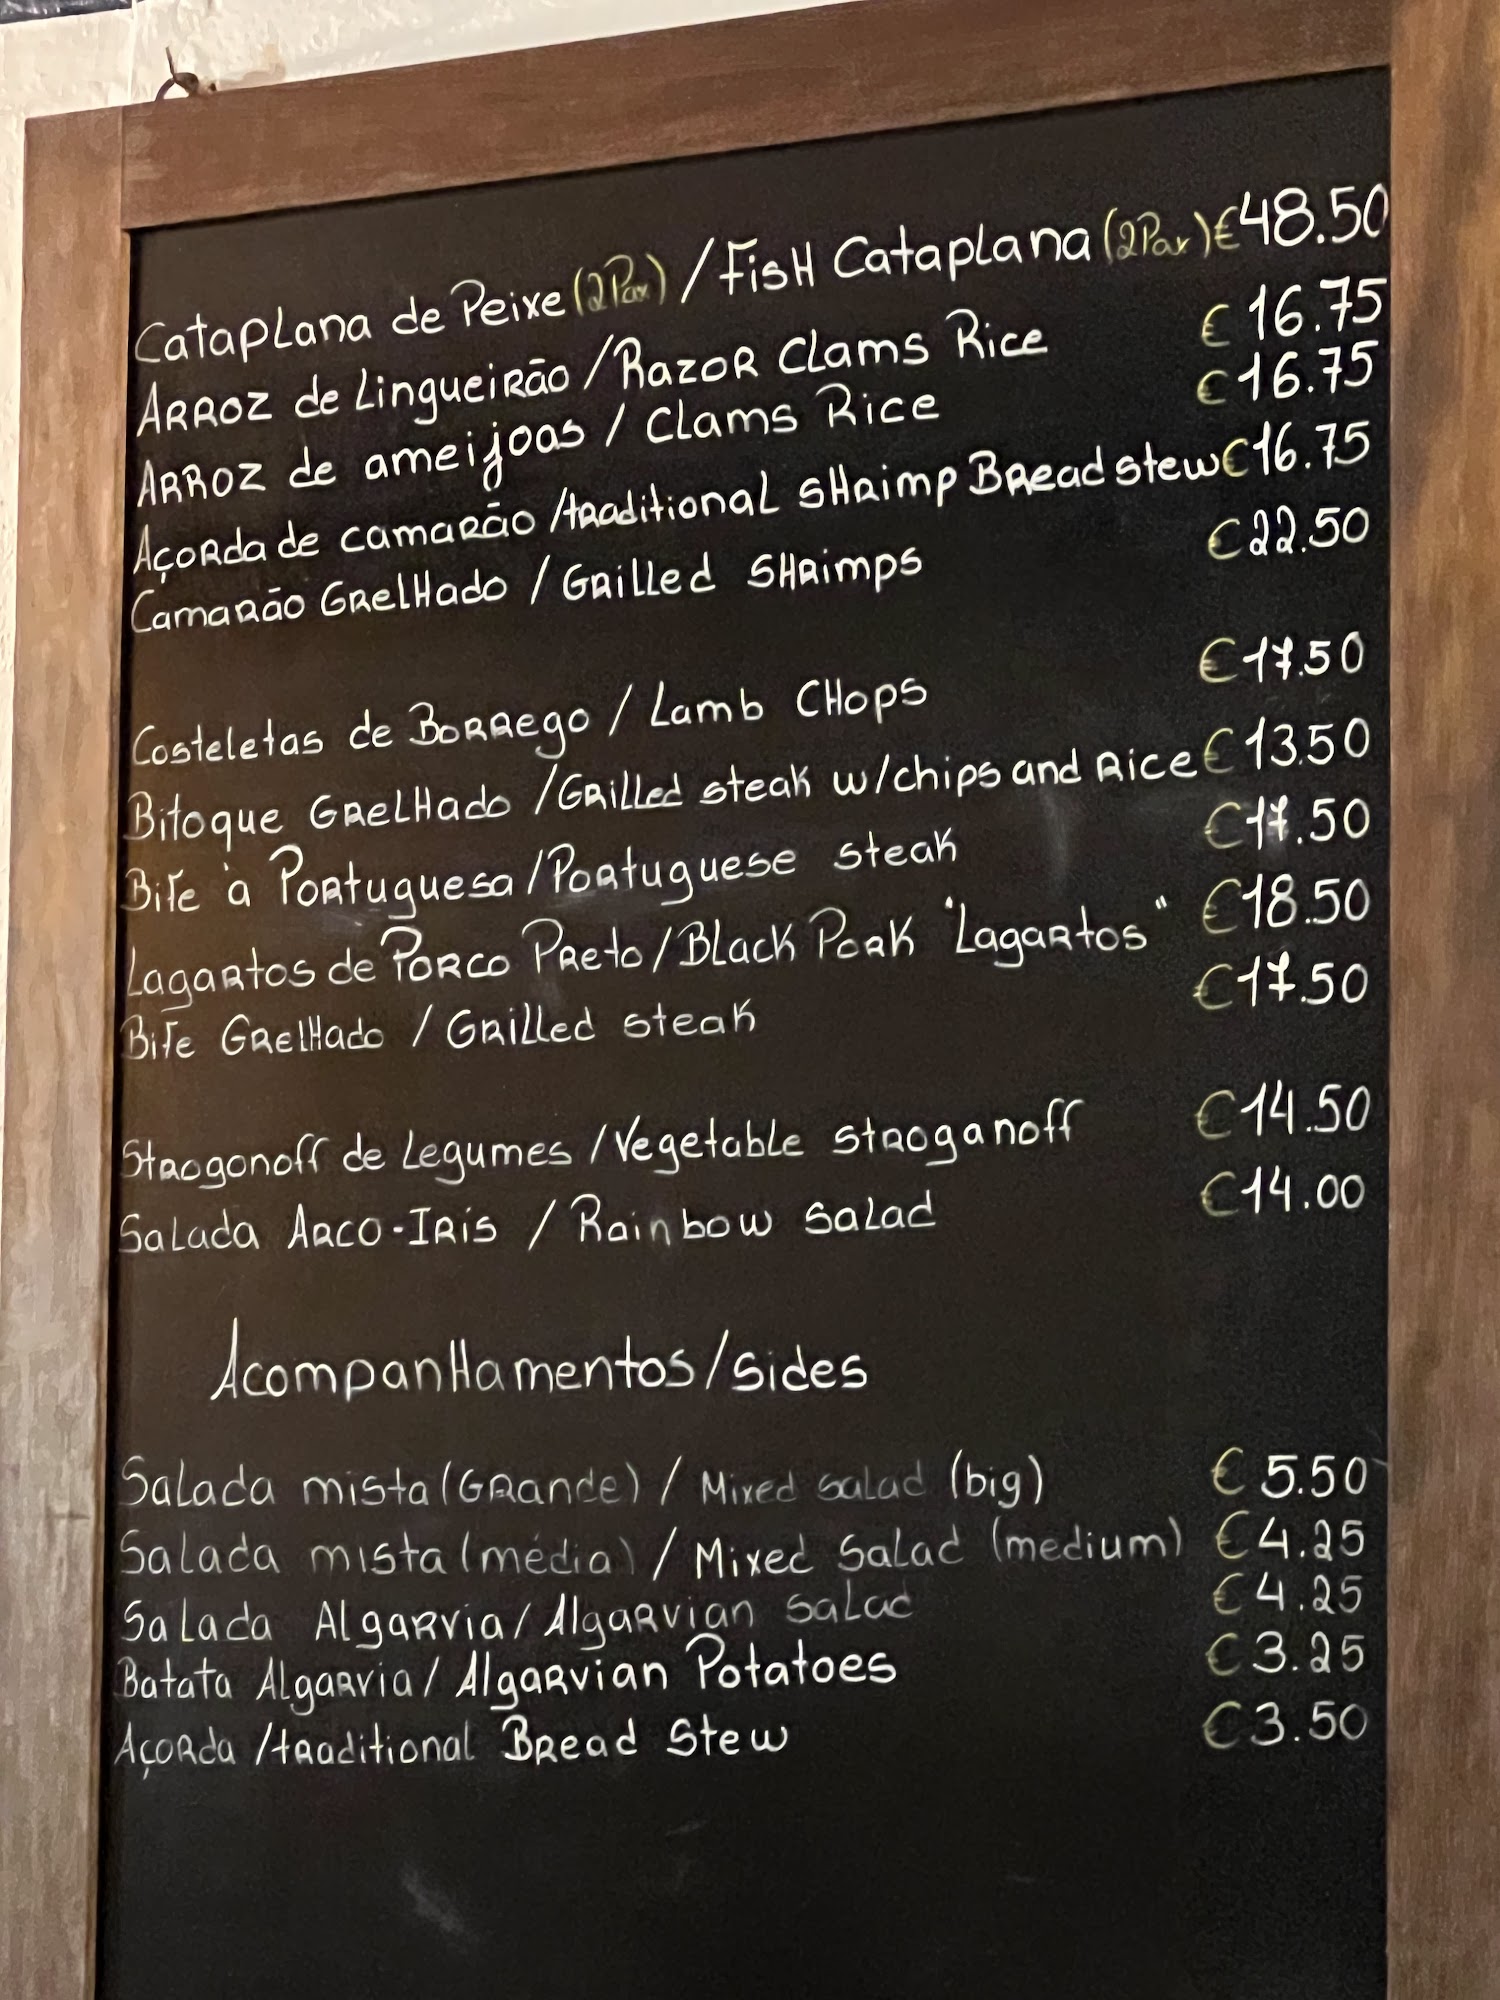 Cataplana de Peixe (2Pax) / Fish Cataplana (2Pax) €48.50
Arroz de Lingueirão / Razor Clams Rice € 16.75
Arroz de ameijoas / Clams Rice €16.75
Açorda de camarão / traditional shrimp Bread stew €16.75
Camarão Grelhado / Grilled Shrimps €22.50
Costeletas de Borrego / Lamb Chops €17.50
Bitoque Grelhado / Grilled steak w/chips and Rice €13.50
Bife à Portuguesa / Portuguese steak €17.50
Lagartos de Porco Preto / Black Pork "Lagartos" €18.50
Bife Grelhado / Grilled steak €17.50
Strogonoff de Legumes / Vegetable stroganoff €14.50
Salada Arco-Iris / Rainbow Salad €14.00
Acompanhamentos/Sides
Salada mista (Grande) / Mixed Salad (big) € 5.50
Salada mista (média) / Mixed Salad (medium) €4.25
Salada Algarvia / Algarvian Salad €4.25
Batata Algarvia / Algarvian Potatoes €3.25
Açorda / traditional Bread Stew €3.50